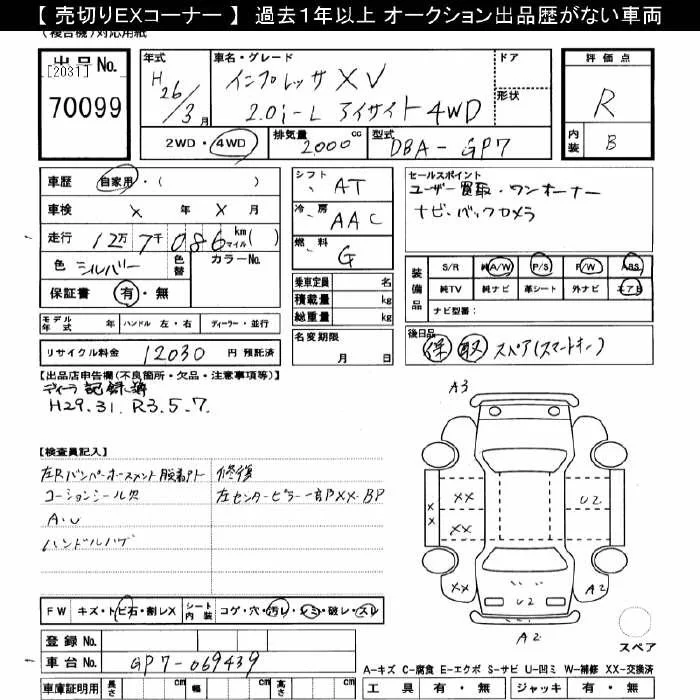 【 売切りEXコーナー 】 過去1年以上 オークション出品歴がない車両
(複合機)対応用紙
出品No.
[2031]
70099
年式
H26/3月
車名・グレード
インプレッサXV
2.0i-L アイサイト4WD
ドア
形状
評価点
R
内装
B
2WD・4WD
排気量
2000 cc
型式
DBA-GP7
車歴 自家用・( )
車検 × 年 × 月
走行 12万7千086 km マイル( )
色 シルバー 色替 カラーNo.
保証書 有・無
シフト AT
冷房 AAC
燃料 G
乗車定員 名
積載量 kg
総重量 kg
セールスポイント
ユーザー買取・ワンオーナー
ナビ・バックカメラ
装備品
S/R 純A/W P/S P/W ABS
純TV 純ナビ 革シート 外ナビ エアB
ナビ型番:
モデル年式 年 ハンドル 左・右 ディーラー・並行
リサイクル料金 12030 円 預託済
名変期限
月 日
後日品
保 取 スペア(スマートキー)
【出品店申告欄(不良箇所・欠品・注意事項等)】
ディーラー記録簿
H29.31. R3.5.7.
【検査員記入】
左Rバンパーホースメント脱着アト
コーションシール欠
A.U
ハンドルハゲ
修復
左センターピラー一部XX・BP
FW キズ・トビ石・割レX シート内装 コゲ・穴・汚レ・シミ・破レ・スレ
登録No.
車台No. GP7-069439
車庫証明用 長さ cm 幅 cm 高さ cm
A3
XX
XX
XX
XX
U2
U2
A2
A2
スペア
A-キズ C-腐食 E-エクボ S-サビ U-凹ミ W-補修 XX-交換済
工具 有・無 ジャッキ 有・無